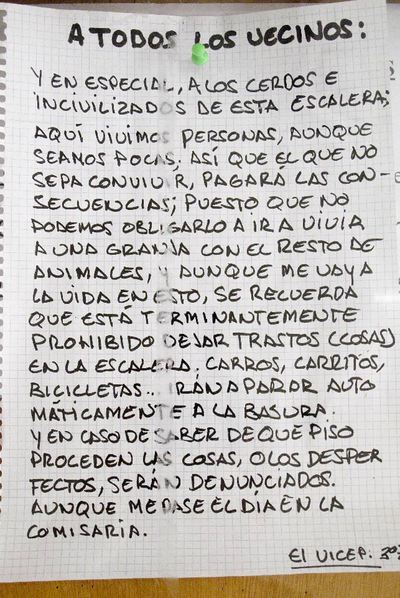 A TODOS LOS VECINOS:
Y EN ESPECIAL, A LOS CERDOS E
INCIVILIZADOS DE ESTA ESCALERA;
AQUÍ VIVIMOS PERSONAS, AUNQUE
SEAMOS POCAS; ASÍ QUE EL QUE NO
SEPA CONVIVIR, PAGARÁ LAS CON-
SECUENCIAS; PUESTO QUE NO
PODEMOS OBLIGARLO A IR A VIVIR
A UNA GRANJA CON EL RESTO DE
ANIMALES, Y AUNQUE ME VAYA
LA VIDA EN ESTO, SE RECUERDA
QUE ESTÁ TERMINANTEMENTE
PROHIBIDO DEJAR TRASTOS (COSAS)
EN LA ESCALERA; CARROS, CARRITOS,
BICICLETAS... IRÁN A PARAR AUTO
MÁTICAMENTE A LA BASURA.
Y EN CASO DE SABER DE QUE PISO
PROCEDEN LAS COSAS, O LOS DESPER
FECTOS, SERÁN DENUNCIADOS.
AUNQUE ME PASE EL DÍA EN LA
COMISARÍA.
El VICEP.